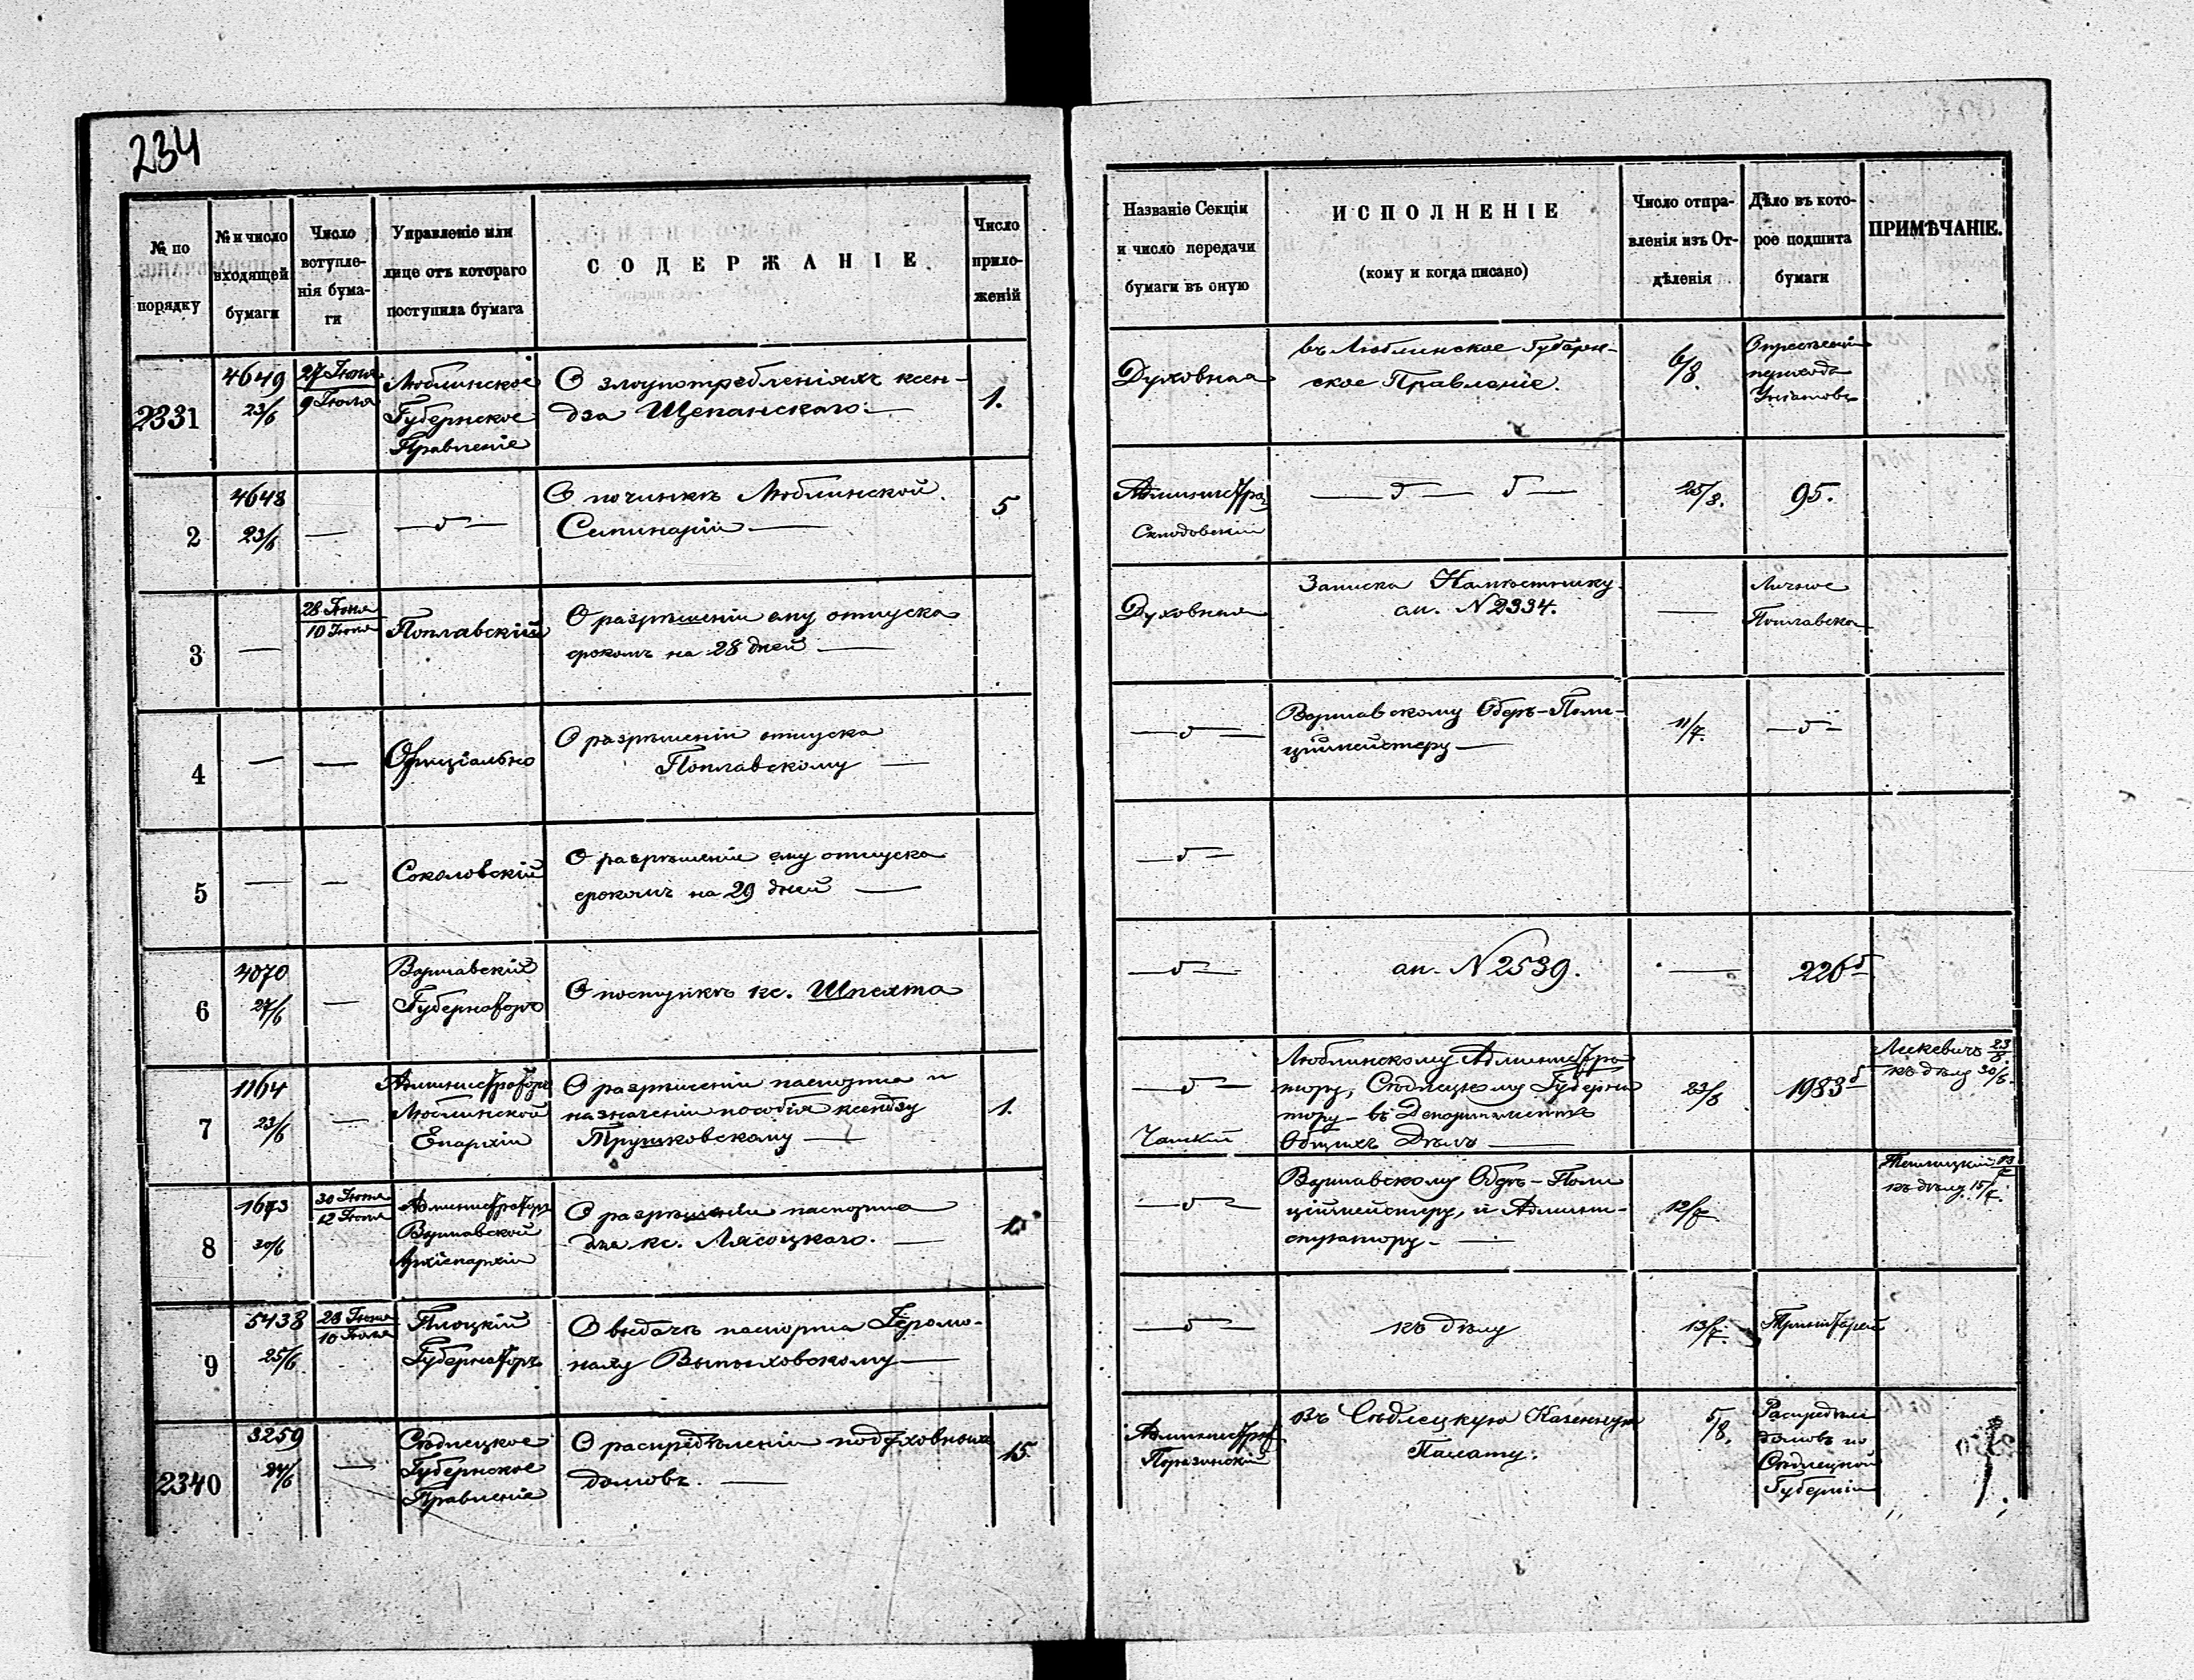 234
№ по порядку
№ и число входящей бумаги
Число вступле-нія бума-ги
Управленіе или лице отъ котораго поступила бумага
СОДЕРЖАНІЕ.
Число прило-женій
Названіе Секціи и число передачи бумаги въ оную
ИСПОЛНЕНІЕ
(кому и когда писано)
Число отпра-вленія изъ От-дѣленія
Дѣло въ кото-рое подшита бумаги
ПРИМѢЧАНІЕ.
2331
4649
23/6
27 Іюня
9 Іюля
Люблинское
Губернское
Правленіе
О злоупотребленіяхъ ксен-
дза Щепанскаго.
1.
Духовная
въ Люблинское Губерн-
ское Правленіе.
6/8.
перехода
2
4648
23/6
—
— „ —
О починкѣ Люблинской
Семинаріи —
5
Администра.
Склодовскій
25/8.
95.
3
—
28 Іюня
10 Іюля
Поплавскій
О разрѣшеніи ему отпуска
срокомъ на 28 дней —
Духовная
Записка Намѣстнику
ап. N 2334.
—
Личное
Поплавско
4
—
—
Офиціально
О разрѣшеніи отпуска
Поплавскому —
Варшавскому Оберъ-Поли-
ціймейстеру —
11/7.
5
—
—
Соколовскій
О разрѣшеніи ему отпуска
срокомъ на 29 дней —
6
4070
27/6
—
Варшавскій
Губернаторъ
О поступкѣ кс. Шпехта
ап. N 2539.
—
226б
7
1164
23/6
—
Администраторъ
Люблинской
Епархіи
О разрѣшеніи паспорта и
назначеніи пособія ксендзу
Трушковскому —
1.
Чапскій
Люблинскому Администра
тору, Сѣдлецкому Губерна
тору - въ Департаментъ
Общихъ Дѣлъ —
23/8
1983б
Лескевичъ 23/8.
къ дѣлу 30/8.
8
1673
30/6
30 Іюня
12 Іюля
Администраторъ
Варшавской
Архіепархіи
О разрѣшеніи паспорта
для кс. Лясоцкаго. —
1.
Варшавскому Оберъ-Поли
ціймейстеру, и Админи-
стратору. —
12/7
къ дѣлу 15/7.
9
5438
25/6
28 Іюня
10 Іюля
Плоцкій
Губернаторъ
О выдачѣ паспорта Іеромо-
наху —
къ дѣлу
13/7.
2340
3259
24/6
—
Сѣдлецкое
Губернское
Правленіе
О распредѣленіи подуховныхъ
домовъ. —
15
Администра
въ Сѣдлецкую Казенную
Палату.
5/8.
Распредѣл
домовъ по
Сѣдлецкой
Губерніи